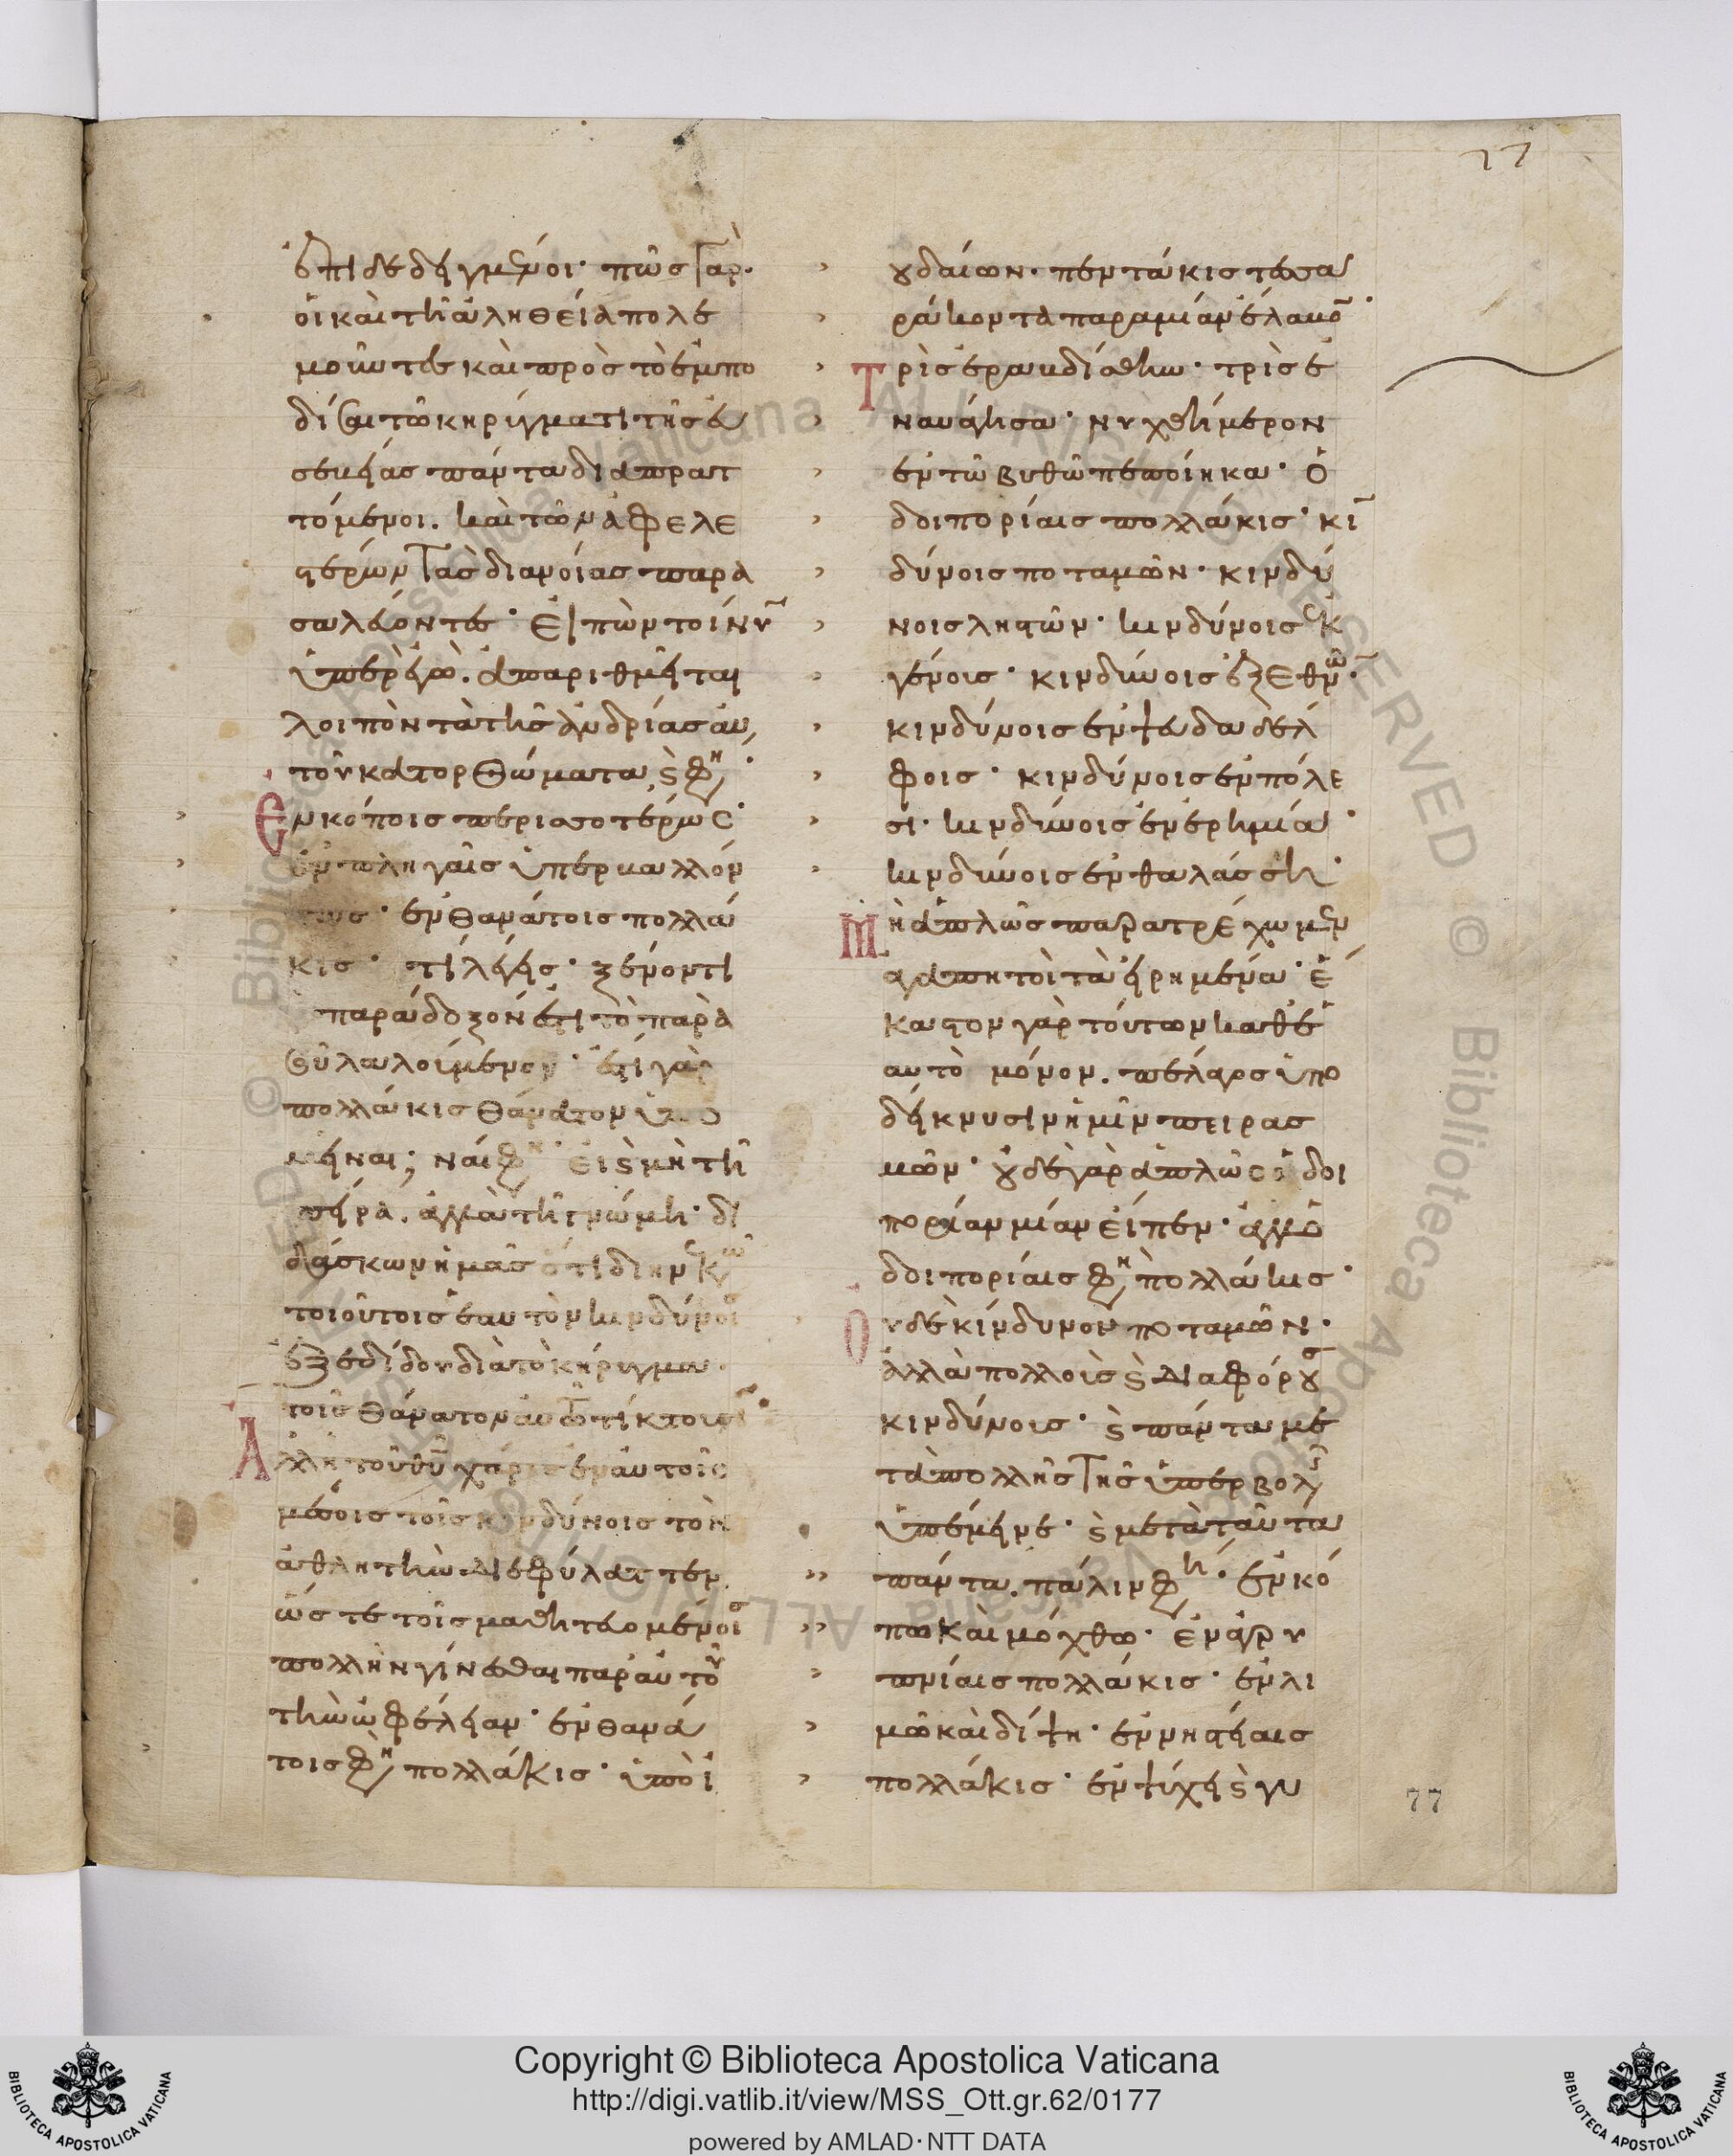 77
ἐπιδεδειγμένοι· πῶς γὰρ·
οἱ καὶ τῆ ἀληθεία πολε
μοῦντες καὶ πρὸς τὸ ἐμπο
δίσαι τῶ κηρύγματι τῆς εὐ
σεβείας πάντα διαπρατ
τόμενοι. καὶ τῶν ἀφελε
στέρων τὰς διανοίας παρα
σαλεύοντες· εἰπὼν τοίνυν
ὑπὲρ ἐγώ. ἀπαριθμεῖται
λοιπὸν τὰ τῆς ἀνδρίας αὐ
τοῦ κατορθώματα, ϗ φη·
Ἐν κόποις περισσοτέρως·
ἐν πληγαῖς ὑπερβαλλόν
τως· ἐν θανάτοις πολλά
κις· τί λέγεις· ξένον τι
παράδοξόν ἐστι τὸ παρὰ
σοῦ λαλούμενον· ἔστι γὰρ
πολλάκις θάνατον ὑπο
μεῖναι; ναί φη· εἰ ϗ μὴ τῆ
πείρα. ἀλλὰ τῆ γνώμη· δι
δάσκων ἡμᾶς ὅτι διηνεκῶ
τοιούτοις ἑαυτὸν κινδύνοις
ἐξεδίδου διὰ τὸ κήρυγμα.
τοῖς θάνατον αὐτῶ τίκτουσι·
Ἀλλ' ἡ τοῦ θῦ χάρις ἐν αὐτοῖς
μέσοις τοῖς κινδύνοις τὸν
ἀθλητὴν διεφύλαττεν.
ὥστε τοῖς μαθητευομένοις
πολλὴν γίνεσθαι παρ' αὐτοῦ
τὴν ὠφέλειαν· ἐν θανά
τοις φη πολλάκις· ὑπὸ ἰ
ουδαίων· πεντάκις τεσσα
ράκοντα παρὰ μίαν ἔλαβον·
Τρὶς ἐραυδίσθην· τρὶς ἐ
ναυάγησα· νυχθήμερον
ἐν τῶ βυθῶ πεποίηκα· ὁ
δοιπορίαις πολλάκις· κιν
δύνοις ποταμῶν· κινδύ
νοις ληστῶν· κινδύνοις ἐκ
γένους· κινδύνοις ἐξ ἐθνῶν·
κινδύνοις ἐν ψευδαδέλ
φοις· κινδύνοις ἐν πόλε
σι· κινδύνοις ἐν ἐρημία·
κινδύνοις ἐν θαλάσση·
Μὴ ἁπλῶς παρατρέχωμεν
ἀγαπητοὶ τὰ εἰρημένα· ἕ
καστον γὰρ τούτων καθ' ἑ
αυτὸ μόνον. πέλαγος ὑπο
δείκνυσιν ἡμῖν πειρασ
μῶν· οὐδὲ γὰρ ἁπλῶς ὁδοι
πορίαν μίαν εἶπεν· ἀλλ' ὁ
δοιπορίαις φη πολλάκις·
Οὐδὲ κίνδυνον ποταμῶν·
ἀλλὰ πολλοὺς ϗ διαφόρους
κινδύνους· ϗ πάντα με
τὰ πολλῆς τῆς ὑπερβολῆς
ὑπέμεινε· ϗ μετὰ ταῦτα
πάντα. πάλιν φη· ἐν κό
πω καὶ μόχθω· ἐν ἀγρυ
πνίαις πολλάκις· ἐν λι
μῶ καὶ δίψη· ἐν νηστείαις
πολλάκις· ἐν ψύχει ϗ γυ
77
© Biblioteca Apostolica Vaticana ALL RIGHTS RESERVED
Copyright © Biblioteca Apostolica Vaticana
http://digi.vatlib.it/view/MSS_Ott.gr.62/0177
powered by AMLAD·NTT DATA
BIBLIOTECA APOSTOLICA VATICANA
BIBLIOTECA APOSTOLICA VATICANA